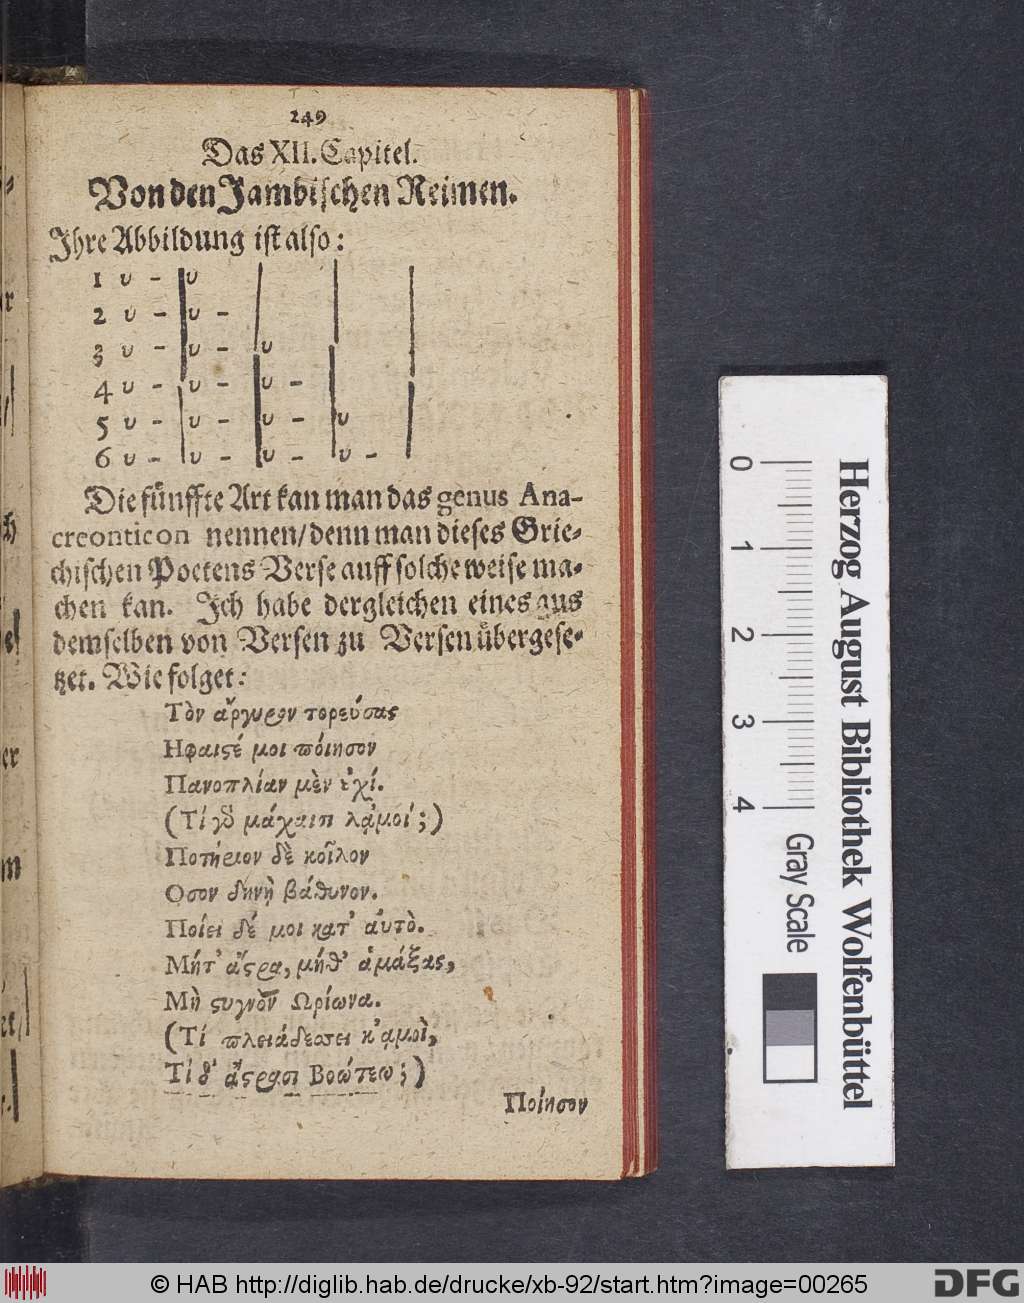 249
Das XII. Capitel.
Von den Jambischen Reimen.
Ihre Abbildung ist also:
1 υ - | υ | | |
2 υ - | υ - | | |
3 υ - | υ - | υ | |
4 υ - | υ - | υ - | |
5 υ - | υ - | υ - | υ |
6 υ - | υ - | υ - | υ - |
Die fünffte Art kan man das genus Ana-
creonticon nennen/ denn man dieses Grie-
chischen Poetens Verse auff solche weise ma-
chen kan. Ich habe dergleichen eines aus
demselben von Versen zu Versen überge se-
tzet. Wie folget:
Τὸν ἄργυρον τορεύσας
Ηφαιϛέ μοι πόιησον
Πανοπλίαν μὲν ἐχί.
(Τί γὸ μάχαιπ λᾳμοί;)
Ποτήριον δὲ κοῖλον
Οσον δηνὴ βάθυνον.
Ποίει δέ μοι κατ' ἀυτὸ.
Μήτ' ἄϛρα, μήθ' ἁμάξας,
Μὴ ϛυγνὸν Ωρίωνα.
(Τί πλειάδεσσι κ'ᾳμοὶ,
Τί δ' ἄϛρασι Βοώτεω;)
Ποίησον
0 1 2 3 4
Herzog August Bibliothek Wolfenbüttel
Gray Scale
© HAB http://diglib.hab.de/drucke/xb-92/start.htm?image=00265
DFG